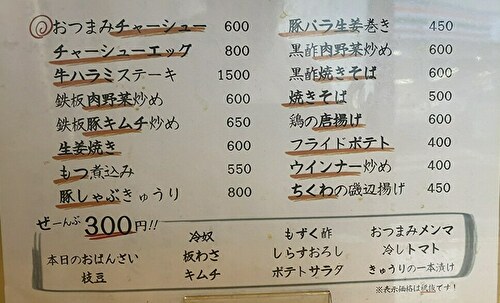 おつまみチャーシュー 600
チャーシューエッグ 800
牛ハラミステーキ 1500
鉄板肉野菜炒め 600
鉄板豚キムチ炒め 650
生姜焼き 600
もつ煮込み 550
豚しゃぶきゅうり 800
豚バラ生姜巻き 450
黒酢肉野菜炒め 600
黒酢焼きそば 600
焼きそば 500
鶏の唐揚げ 600
フライドポテト 400
ウインナー炒め 400
ちくわの磯辺揚げ 450
ぜーんぶ 300円!!
本日のおばんざい
枝豆
冷奴
板わさ
キムチ
もずく酢
しらすおろし
ポテトサラダ
おつまみメンマ
冷しトマト
きゅうりの一本漬け
※表示価格は税抜です!